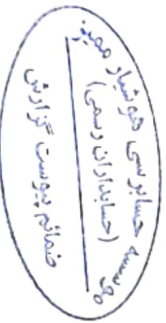 موسسه حسابرسی هوشیار ممیز
(حسابداران رسمی)
ضمائم پیوست گزارش